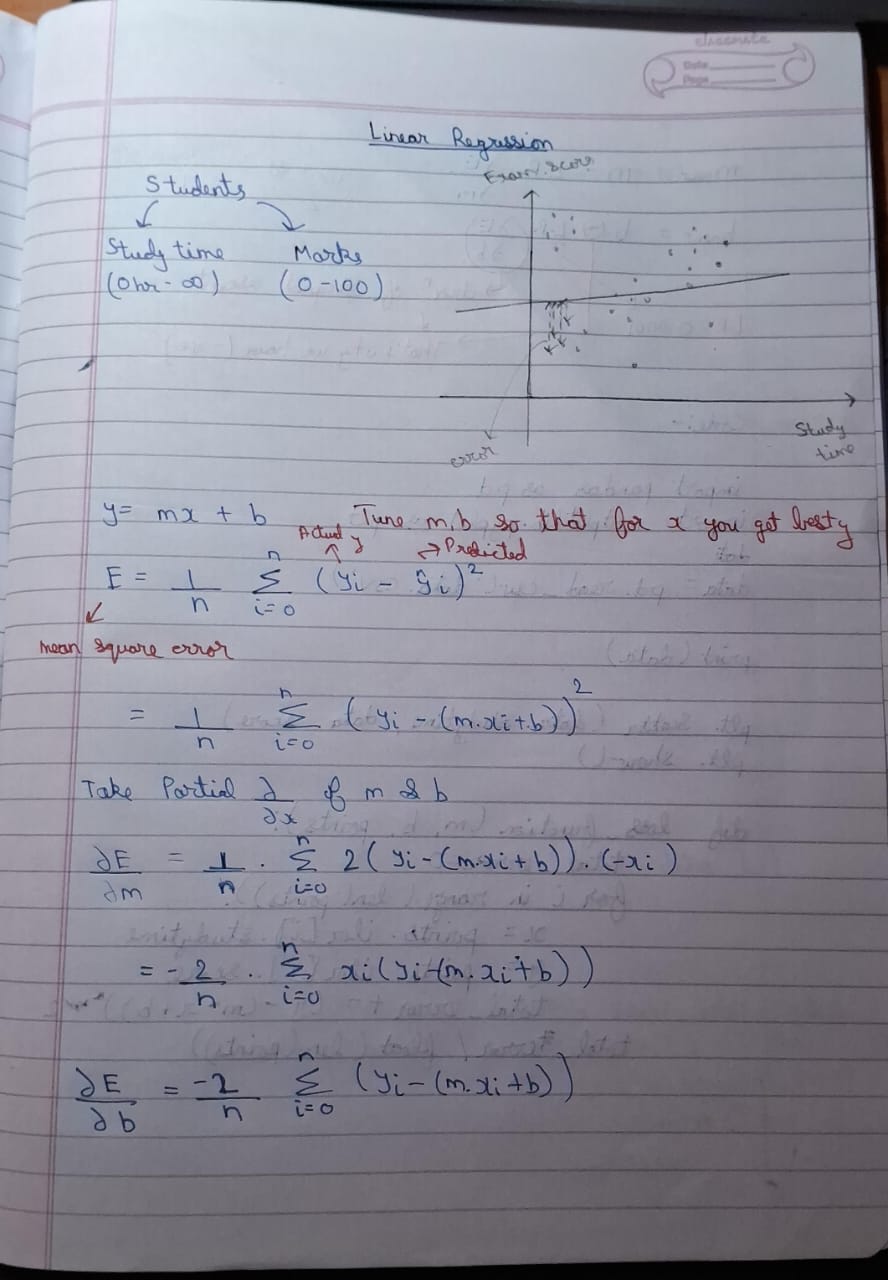 classmate
Date
Page
Linear Regression
Students
Study time
Marks
(0hr - ∞)
(0-100)
Exam score
Study
time
error
y = mx + b
Tune m,b so that, for x you get best y
Actual y
→ Predicted
E = 1/n Σ_{i=0}^{n} (yi - ŷi)²
mean square error
= 1/n Σ_{i=0}^{n} (yi - (m.xi+b))²
Take Partial ∂/∂x of m & b
∂E/∂m = 1/n . Σ_{i=0}^{n} 2(yi-(m.xi+b)).(-xi)
= -2/n . Σ_{i=0}^{n} xi(yi-(m.xi+b))
∂E/∂b = -2/n Σ_{i=0}^{n} (yi-(m.xi+b))